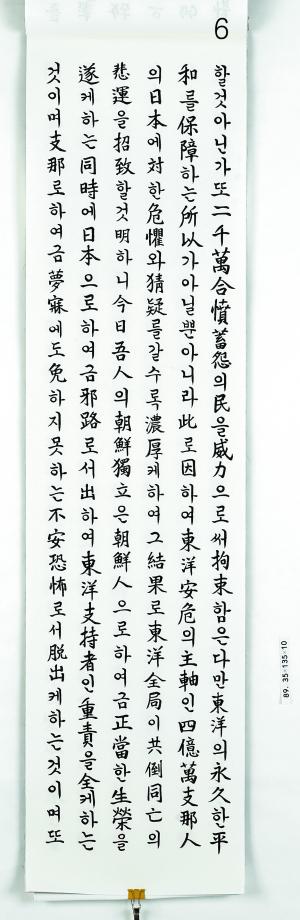 6
할것아닌가또二千萬含憤蓄怨의民을威力으로써拘束함은다만東洋의永久한平
和를保障하는所以가아닐뿐아니라此로因하여東洋安危의主軸인四億萬支那人
의日本에対한危懼와猜疑를갈수록濃厚케하여그結果로東洋全局이共倒同亡의
悲運을招致할것明하니今日吾人의朝鮮獨立은朝鮮人으로하여금正當한生榮을
遂케하는同時에日本으로하여금邪路로서出하여東洋支持者인重責을全케하는
것이며支那로하여금夢寐에도免하지못하는不安恐怖로서脫出케하는것이며또
89. 35×135×10